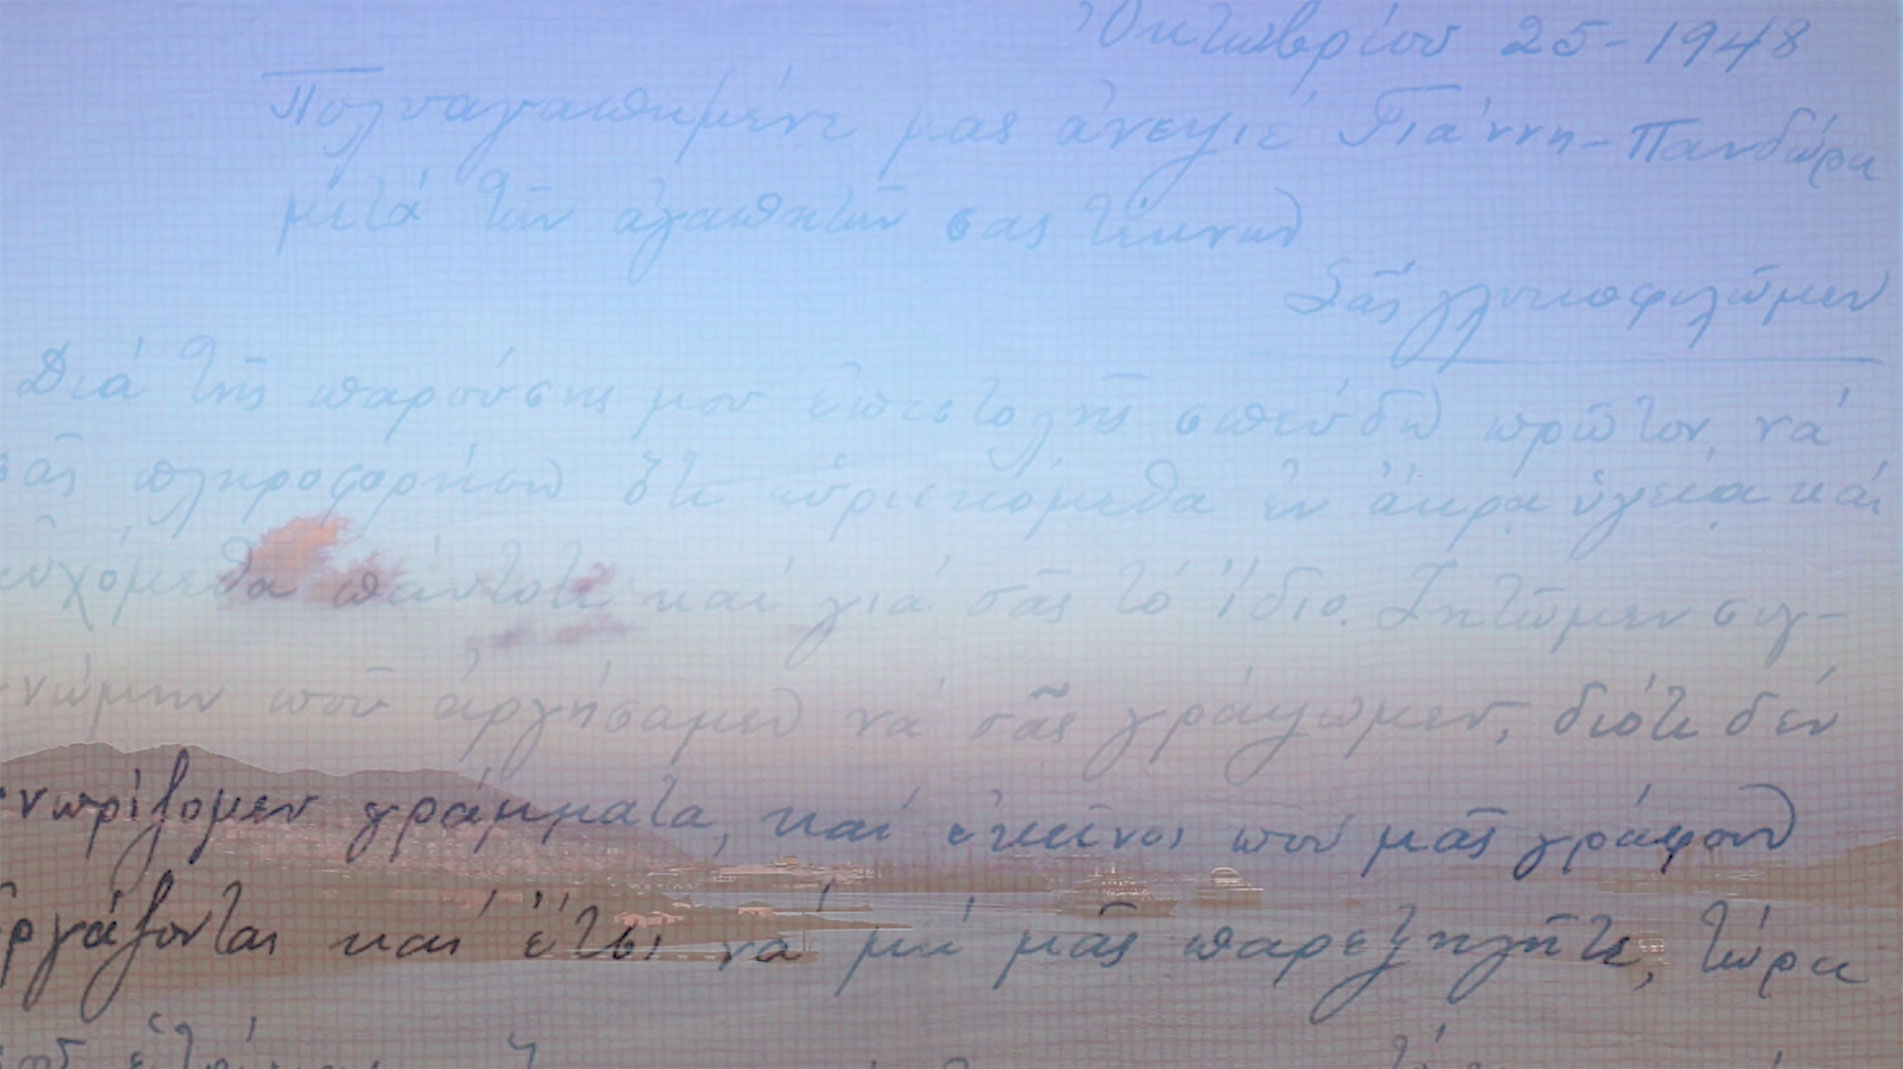 Ὀκτωβρίου 25-1948
Πολυαγαπημένε μας ἀνεψιέ Γιάννη-Πανδώρα
μετά τῶν ἀγαπητῶν σας τέκνων
Σᾶς γλυκοφιλῶμεν
Διά τῆς παρούσης μου ἐπιστολῆς σπεύδω πρῶτον νά
σᾶς πληροφορήσω ὅτι εὑρισκόμεθα ἐν ἄκρᾳ ὑγείᾳ καί
εὐχόμεθα πάντοτε καί γιά σᾶς τό ἴδιο. Ζητῶμεν συγ-
νώμην ποῦ ἀργήσαμεν νά σᾶς γράψωμεν, διότι δέν
γνωρίζομεν γράμματα, καί ἐκεῖνοι πού μᾶς γράφουν
ἐργάζονται καί ἔτσι νά μή μᾶς παρεξηγῆτε, τώρα